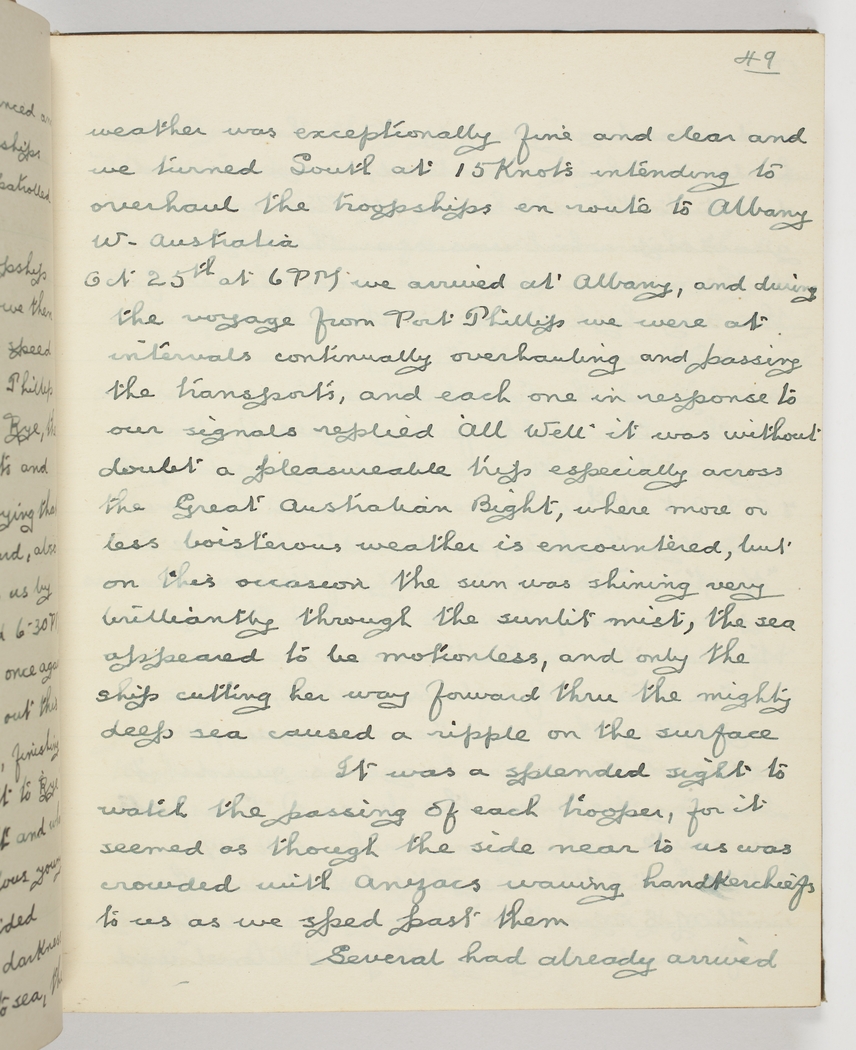 49
weather was exceptionally fine and clear and
we turned South at 15 Knots intending to
overhaul the troopships en route to Albany
W- Australia
Oct 25th at 6 PM we arrived at Albany, and during
the voyage from Port Phillip we were at
intervals continually overhauling and passing
the transports, and each one in response to
our signals replied "All Well" it was without
doubt a pleasureable trip especially across
the Great Australian Bight, where more or
less boisterous weather is encountered, but
on this occasion the sun was shining very
brilliantly through the sunlit mist, the sea
appeared to be motionless, and only the
ship cutting her way forward thru the mighty
deep sea caused a ripple on the surface
It was a splended sight to
watch the passing of each trooper, for it
seemed as though the side near to us was
crowded with Anzacs waving handkerchiefs
to us as we sped past them
Several had already arrived
nced a
ships
patrolled
pship
we then
speed
Phillip
Rye, the
ts and
ying the
rd, also
us by
6-30 P
once aga
out this
, finishing
t to Rye
t and wh
ious young
ided
darkness
to sea, th